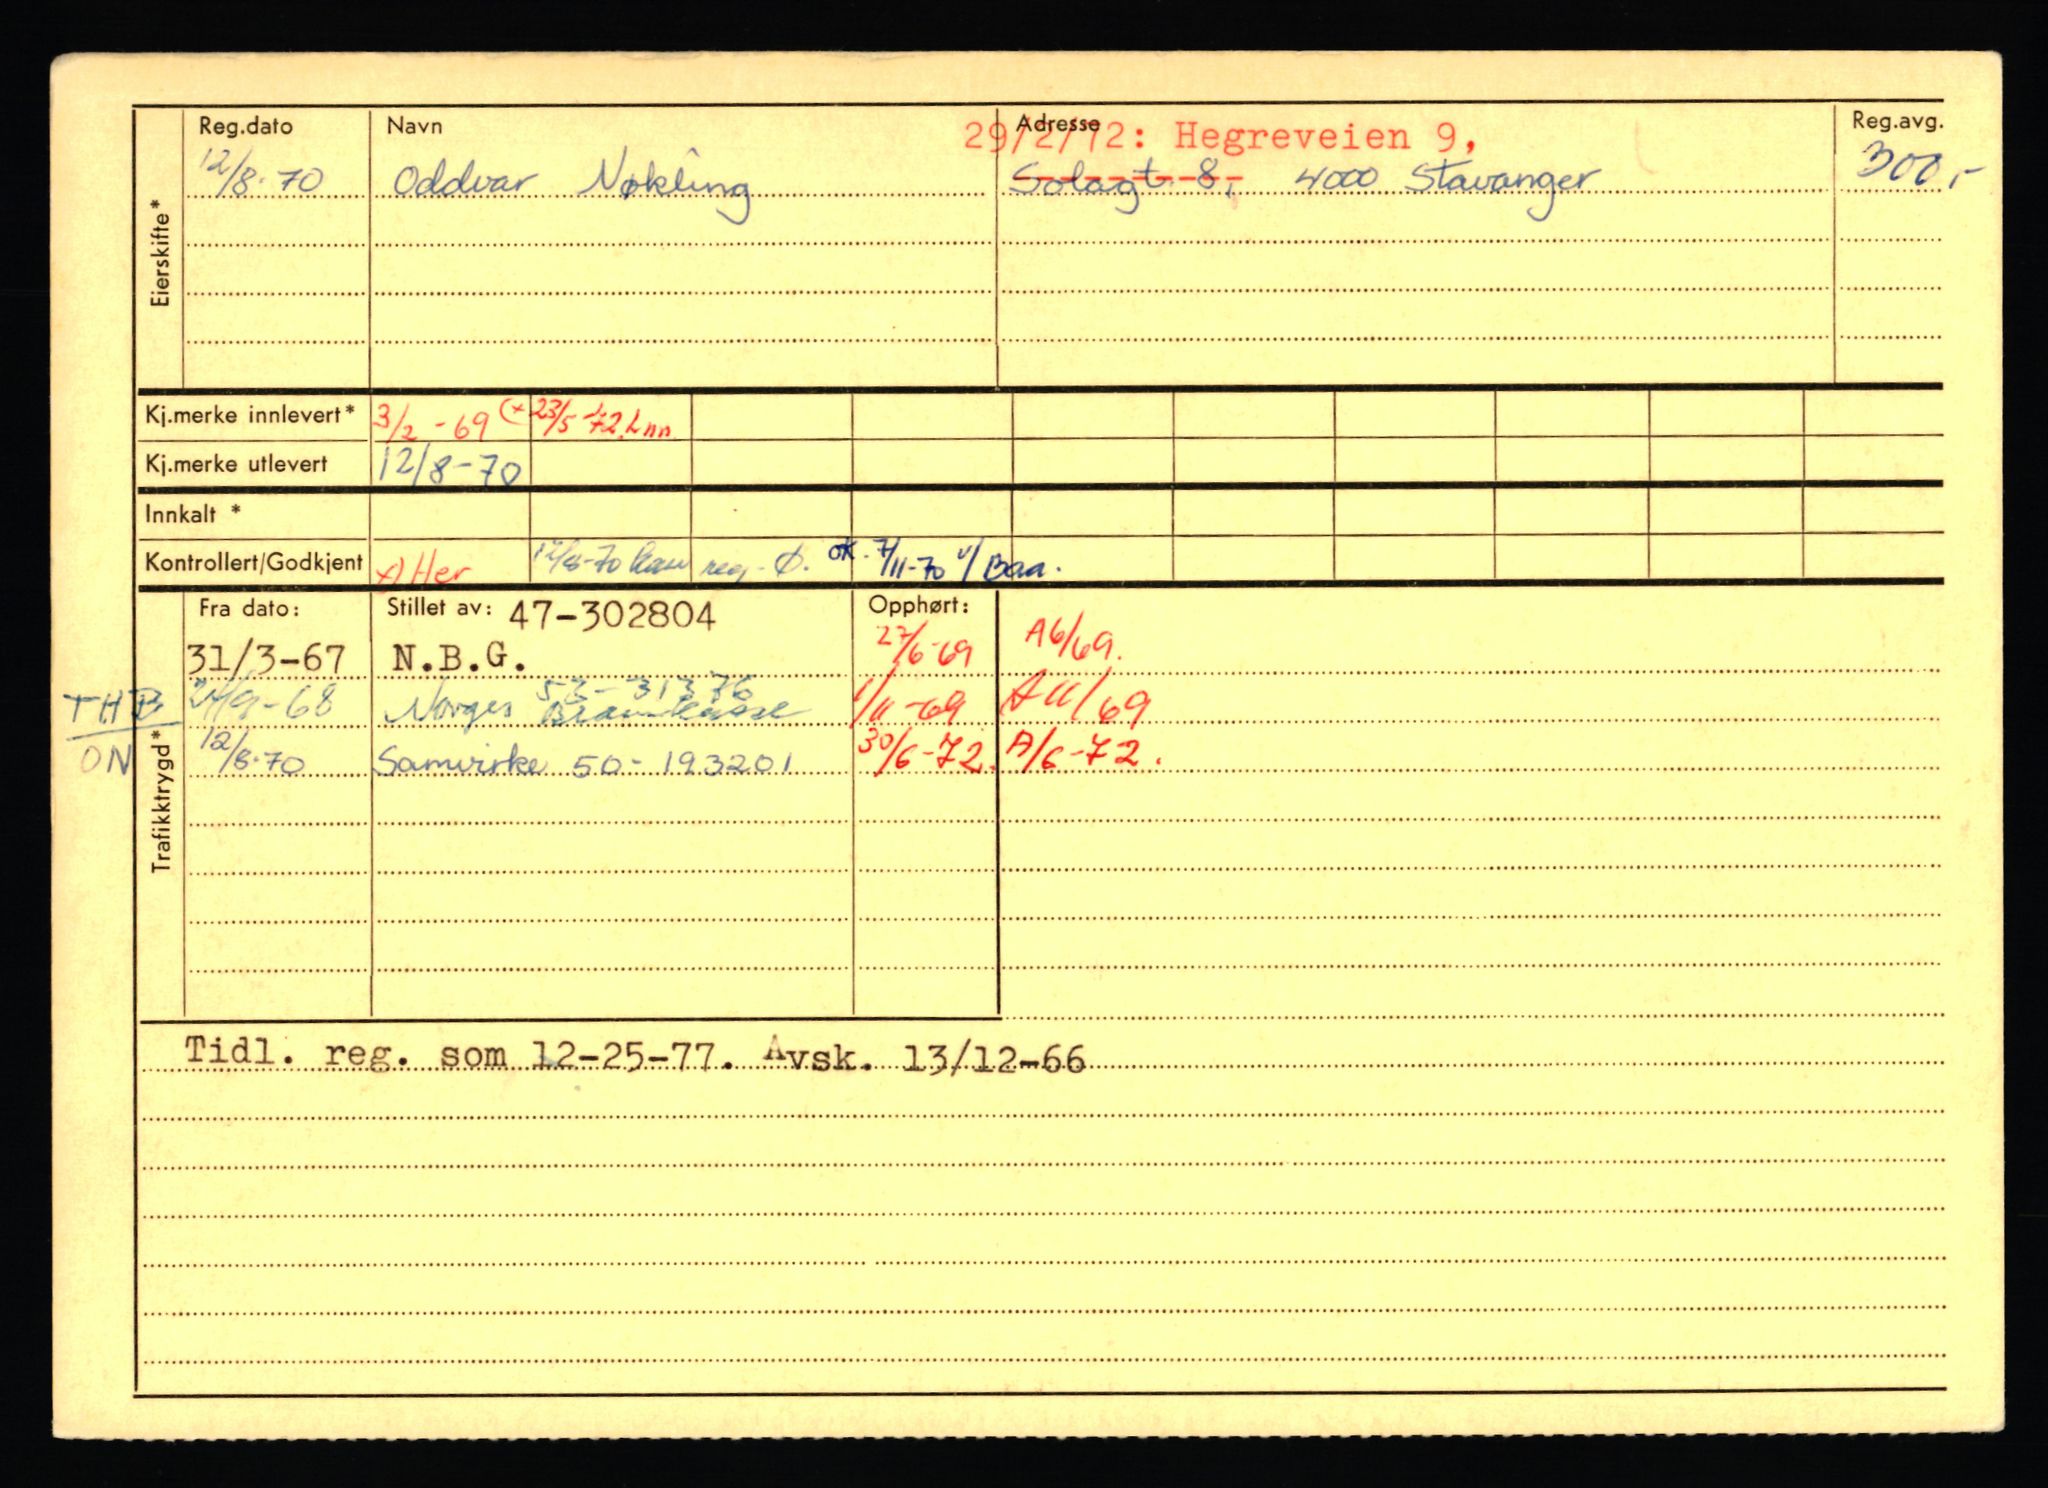 Reg.dato Navn Adresse Reg.avg.
29/2/72: Hegreveien 9,
12/8-70 Oddvar Nøkling Solagt. 8, 4000 Stavanger 300,-
Eierskifte*
Kj.merke innlevert* 3/2-69 (x 23/5-72. Lnn
Kj.merke utlevert 12/8-70
Innkalt *
Kontrollert/Godkjent x) Her 12/8-70 Kan reg. Ø. OK. 7/11-70 v/ Baa.
Fra dato: Stillet av: 47-302804 Opphørt:
31/3-67 N.B.G. 27/6-69 A6/69.
53-31376
THB /9-68 Norges Brannkasse 1/11-69 A11/69
ON 12/8-70 Samvirke 50-193201 30/6-72. A/6-72.
Trafikktrygd*
Tidl. reg. som 12-25-77. Avsk. 13/12-66